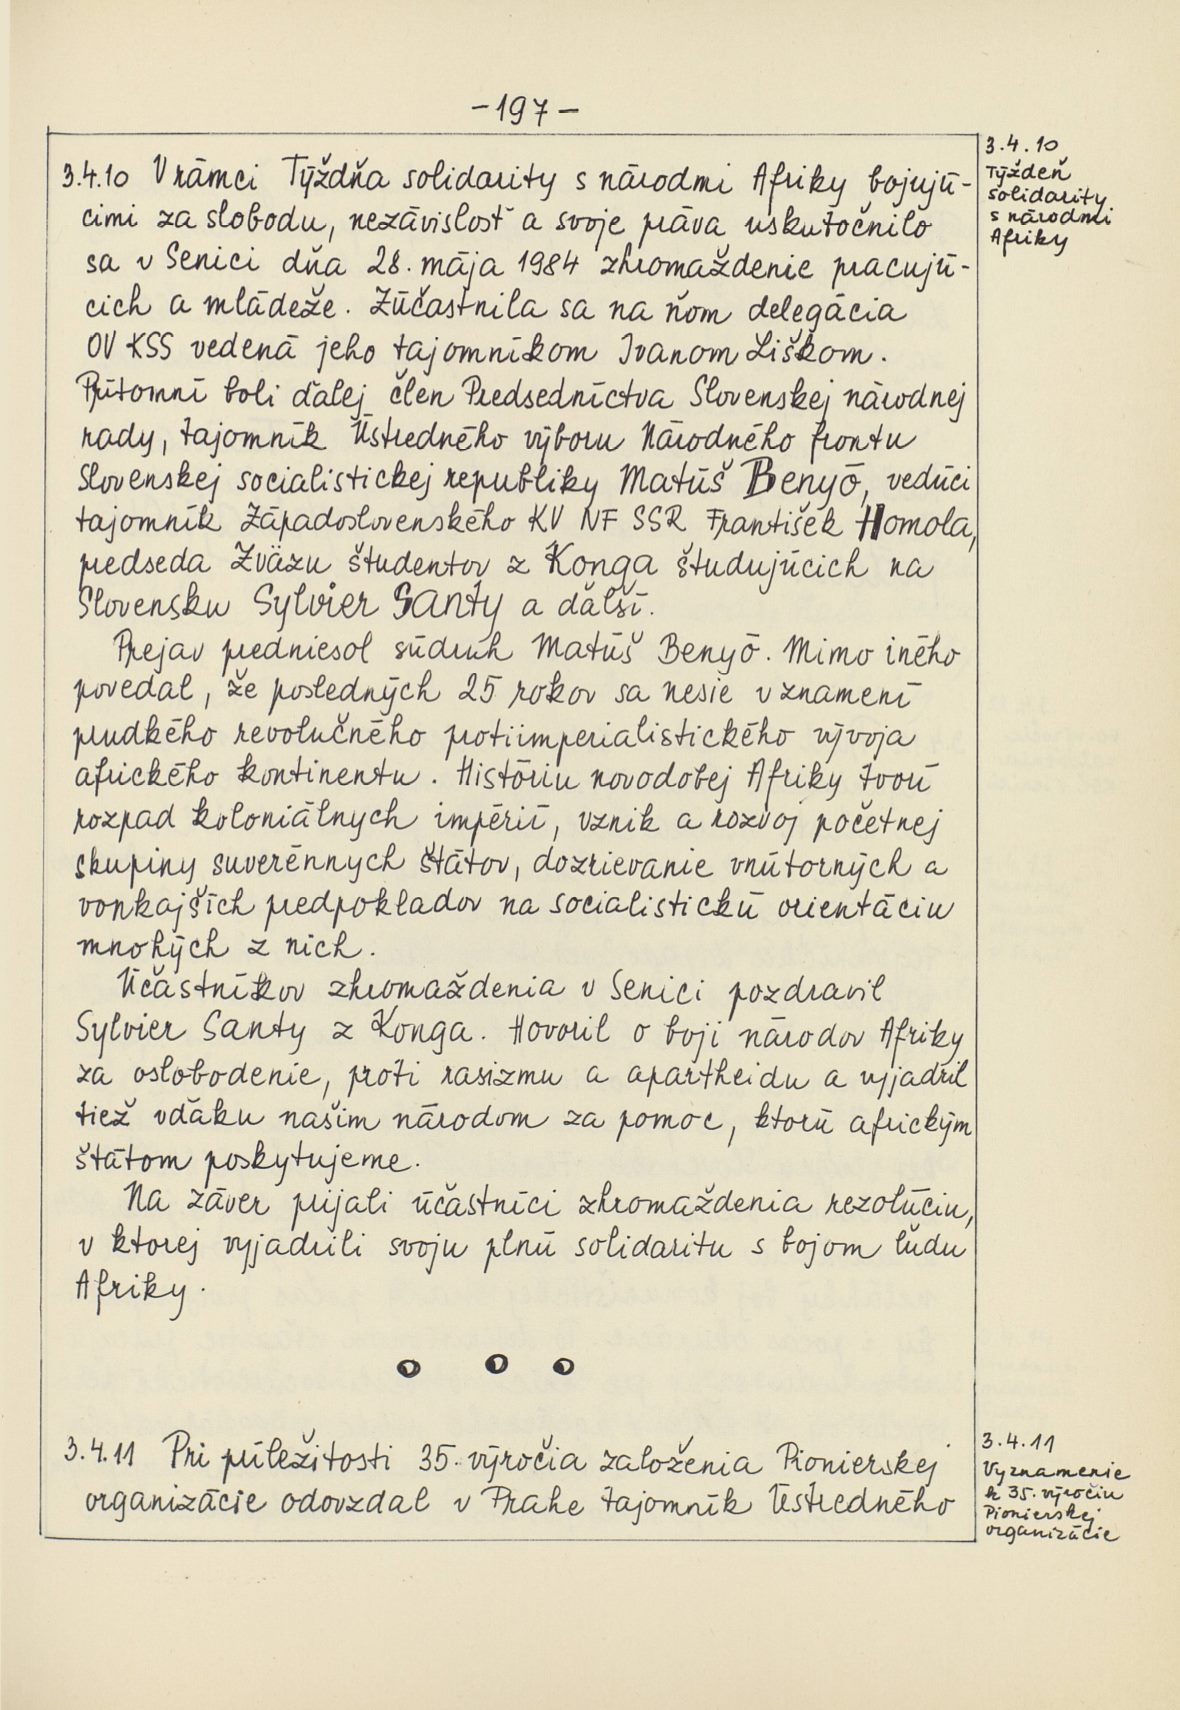 -197-
3.4.10 V rámci Týždňa solidarity s národmi Afriky bojujú-
cimi za slobodu, nezávislosť a svoje práva uskutočnilo
sa v Senici dňa 28. mája 1984 zhromaždenie pracujú-
cich a mládeže. Zúčastnila sa na ňom delegácia
OV KSS vedená jeho tajomníkom Ivanom Liškom.
Prítomní boli ďalej člen Predsedníctva Slovenskej národnej
rady, tajomník Ústredného výboru Národného frontu
Slovenskej socialistickej republiky Matúš Benyó, vedúci
tajomník Západoslovenského KV NF SSR František Homola,
predseda Zväzu študentov z Konga študujúcich na
Slovensku Sylvier Santy a ďalší.
Prejav predniesol súdruh Matúš Benyó. Mimo iného
povedal, že posledných 25 rokov sa nesie v znamení
prudkého revolučného protiimperialistického vývoja
afrického kontinentu. Históriu novodobej Afriky tvorí
rozpad koloniálnych impérií, vznik a rozvoj početnej
skupiny suverénnych štátov, dozrievanie vnútorných a
vonkajších predpokladov na socialistickú orientáciu
mnohých z nich.
Účastníkov zhromaždenia v Senici pozdravil
Sylvier Santy z Konga. Hovoril o boji národov Afriky
za oslobodenie, proti rasizmu a apartheidu a vyjadril
tiež vďaku našim národom za pomoc, ktorú africkým
štátom poskytujeme.
Na záver prijali účastníci zhromaždenia rezolúciu,
v ktorej vyjadrili svoju plnú solidaritu s bojom ľudu
Afriky.
3.4.11 Pri príležitosti 35. výročia založenia Pionierskej
organizácie odovzdal v Prahe tajomník Ústredného
3.4.10
Týždeň
solidarity
s národmi
Afriky
3.4.11
Vyznamenie
k 35. výročiu
Pionierskej
organizácie